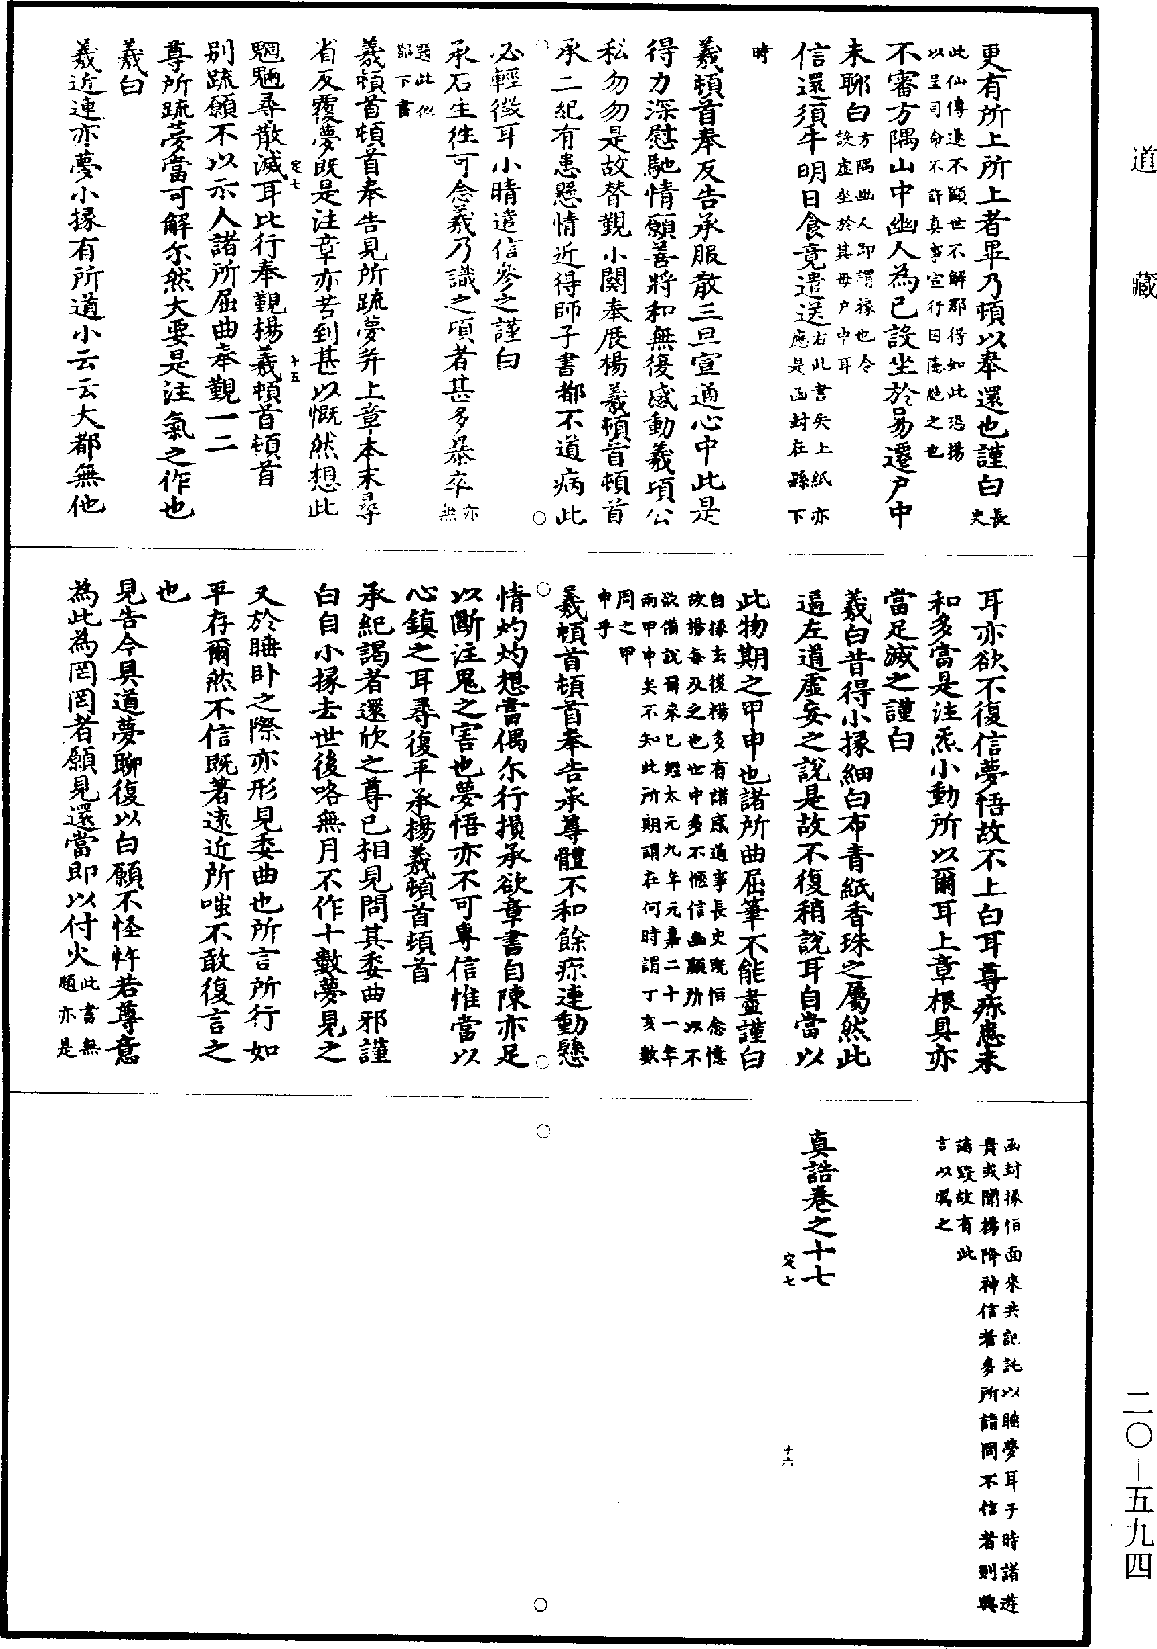 道藏
更有所上所上者畢乃頓以奉還也謹白長史
此仙傳遠不顯世不解那得如此恐楊
以呈司命不許真事宣行因隱絕之也
不審方隅山中幽人為已設坐於易遷戶中
未聊白方隅幽人即謂掾也令
設虛坐於其母戶中耳
信還須牛明日食竟遣送右此書矣上紙亦
應是函封在縣下
時
羲頓首奉反告承服散三旦宣通心中此是
得力深慰馳情願善將和無復感動羲頃公
私勿勿是故替覲小闋奉展楊羲頓首頓首
承二紀有患懸情近得師子書都不道病此
必輕微耳小晴遣信參之謹白
承石生往可念羲乃識之頃者甚多暴卒亦無
題此似
部下書
羲頓首頓首奉告見所疏夢并上章本末尋
省反覆夢既是注章亦苦到甚以慨然想此
魍魎尋散滅耳比行奉覲楊羲頓首頓首
定七
十五
別疏願不以示人諸所屈曲奉覲一二
尊所疏夢當可解尒然大要是注氣之作也
羲白
羲近連亦夢小掾有所道小云云大都無他
耳亦欲不復信夢悟故不上白耳尊疹患未
和多當是注炁小動所以爾耳上章根具亦
當足滅之謹白
羲白昔得小掾細白布青紙香珠之屬然此
逼左道虛妄之說是故不復稍說耳自當以
此物期之甲申也諸所曲屈筆不能盡謹白
自掾去後楊多有諸感通事長史既恒念憶
故楊每及之也世中多不愜信幽顯所以不
欲備說爾來已經太元九年元嘉二十一年
兩甲申矣不知此所期謂在何時謂丁亥數
周之甲
申乎
羲頓首頓首奉告承尊體不和餘疹連動懸
情灼灼想當偶尒行損承欲章書自陳亦足
以斷注鬼之害也夢悟亦不可專信惟當以
心鎮之耳尋復平承楊羲頓首頓首
承紀謁者還欣之尊已相見問其委曲邪謹
白自小掾去世後略無月不作十數夢見之
又於睡臥之際亦形見委曲也所言所行如
平存爾然不信既著遠近所嗤不敢復言之
也
見告今具道夢聊復以白願不怪忤若尊意
為此為罔罔者願見還當即以付火此書無
題亦是
函封掾伯面來共記託以睡夢耳于時諸遊
貴或聞楊降神信者多所請問不信者則興
謗毀故有此
言以厲之
真誥卷之十七
定七
十六
二〇—五九四